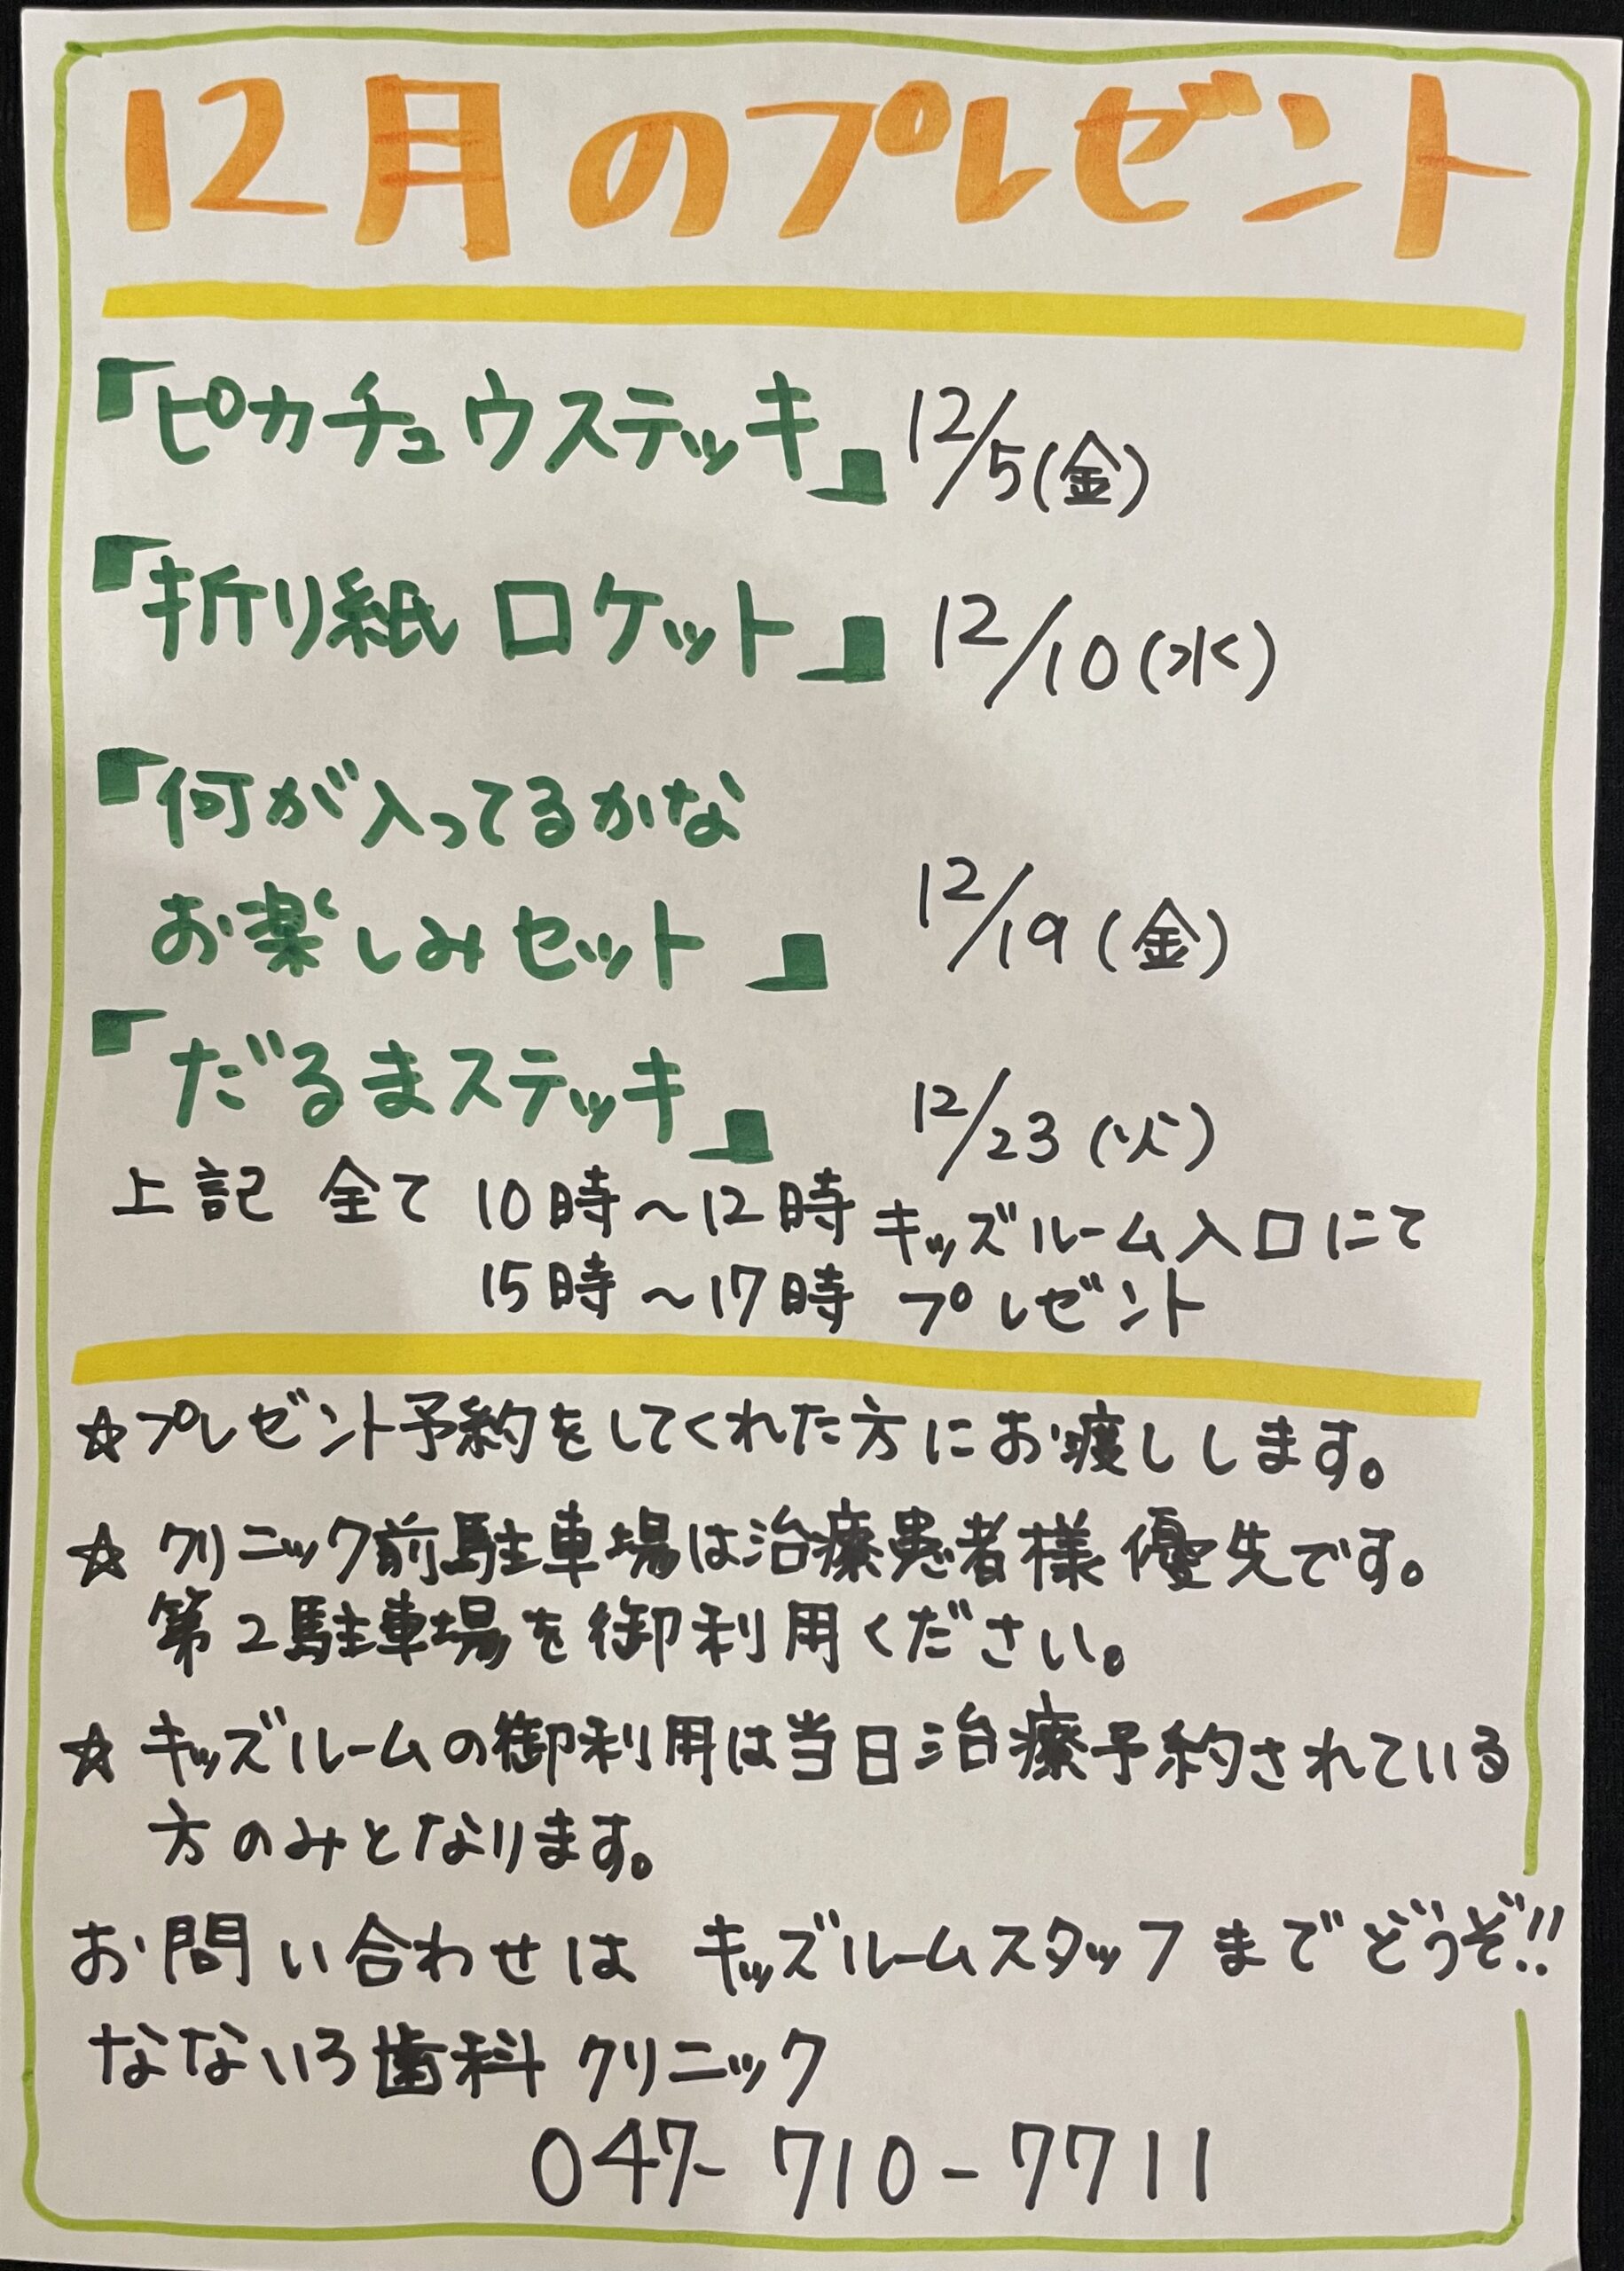 12月のプレゼント
『ピカチュウステッキ』 12/5(金)
『折り紙 ロケット』 12/10(水)
『何が入ってるかな
お楽しみセット』 12/19(金)
『だるまステッキ』 12/23(火)
上記 全て 10時〜12時 キッズルーム入口にて
15時〜17時 プレゼント
☆プレゼント予約をしてくれた方にお渡しします。
☆ クリニック前駐車場は治療患者様優先です。
第2駐車場を御利用ください。
☆ キッズルームの御利用は当日治療予約されている
方のみとなります。
お問い合わせは キッズルームスタッフまでどうぞ!!
なないろ歯科クリニック
047-710-7711